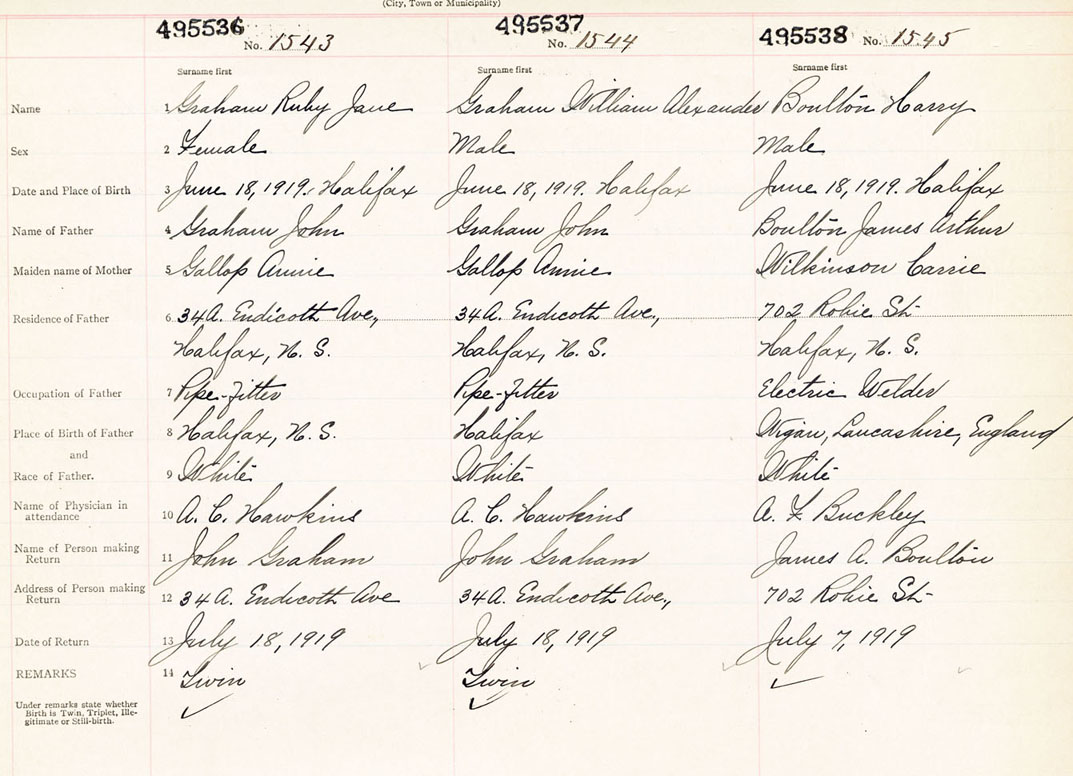 (City, Town or Municipality)
495536 No. 1543 495537 No. 1544 495538 No. 1545
Surname first Surname first Surname first
Name 1 Graham Ruby Jane Graham William Alexander Boulton Harry
Sex 2 Female Male Male
Date and Place of Birth 3 June 18, 1919. Halifax June 18, 1919. Halifax June 18, 1919. Halifax
Name of Father 4 Graham John Graham John Boulton James Arthur
Maiden name of Mother 5 Gallop Annie Gallop Annie Wilkinson Carrie
Residence of Father 6 34A. Endicoth Ave., 34A. Endicoth Ave., 702 Robie St-
Halifax, N. S. Halifax, N. S. Halifax, N. S.
Occupation of Father 7 Pipe-fitter Pipe-fitter Electric Welder
Place of Birth of Father 8 Halifax, N. S. Halifax Wigan, Lancashire, England
and
Race of Father. 9 White White White
Name of Physician in attendance 10 A. C. Hawkins A. C. Hawkins A. F. Buckley
Name of Person making Return 11 John Graham John Graham James A. Boulton
Address of Person making Return 12 34A. Endicoth Ave 34A. Endicoth Ave., 702 Robie St-
Date of Return 13 July 18, 1919 July 18, 1919 July 7, 1919
REMARKS 14 Twin Twin
Under remarks state whether
Birth is Twin, Triplet, Ille-
gitimate or Still-birth.